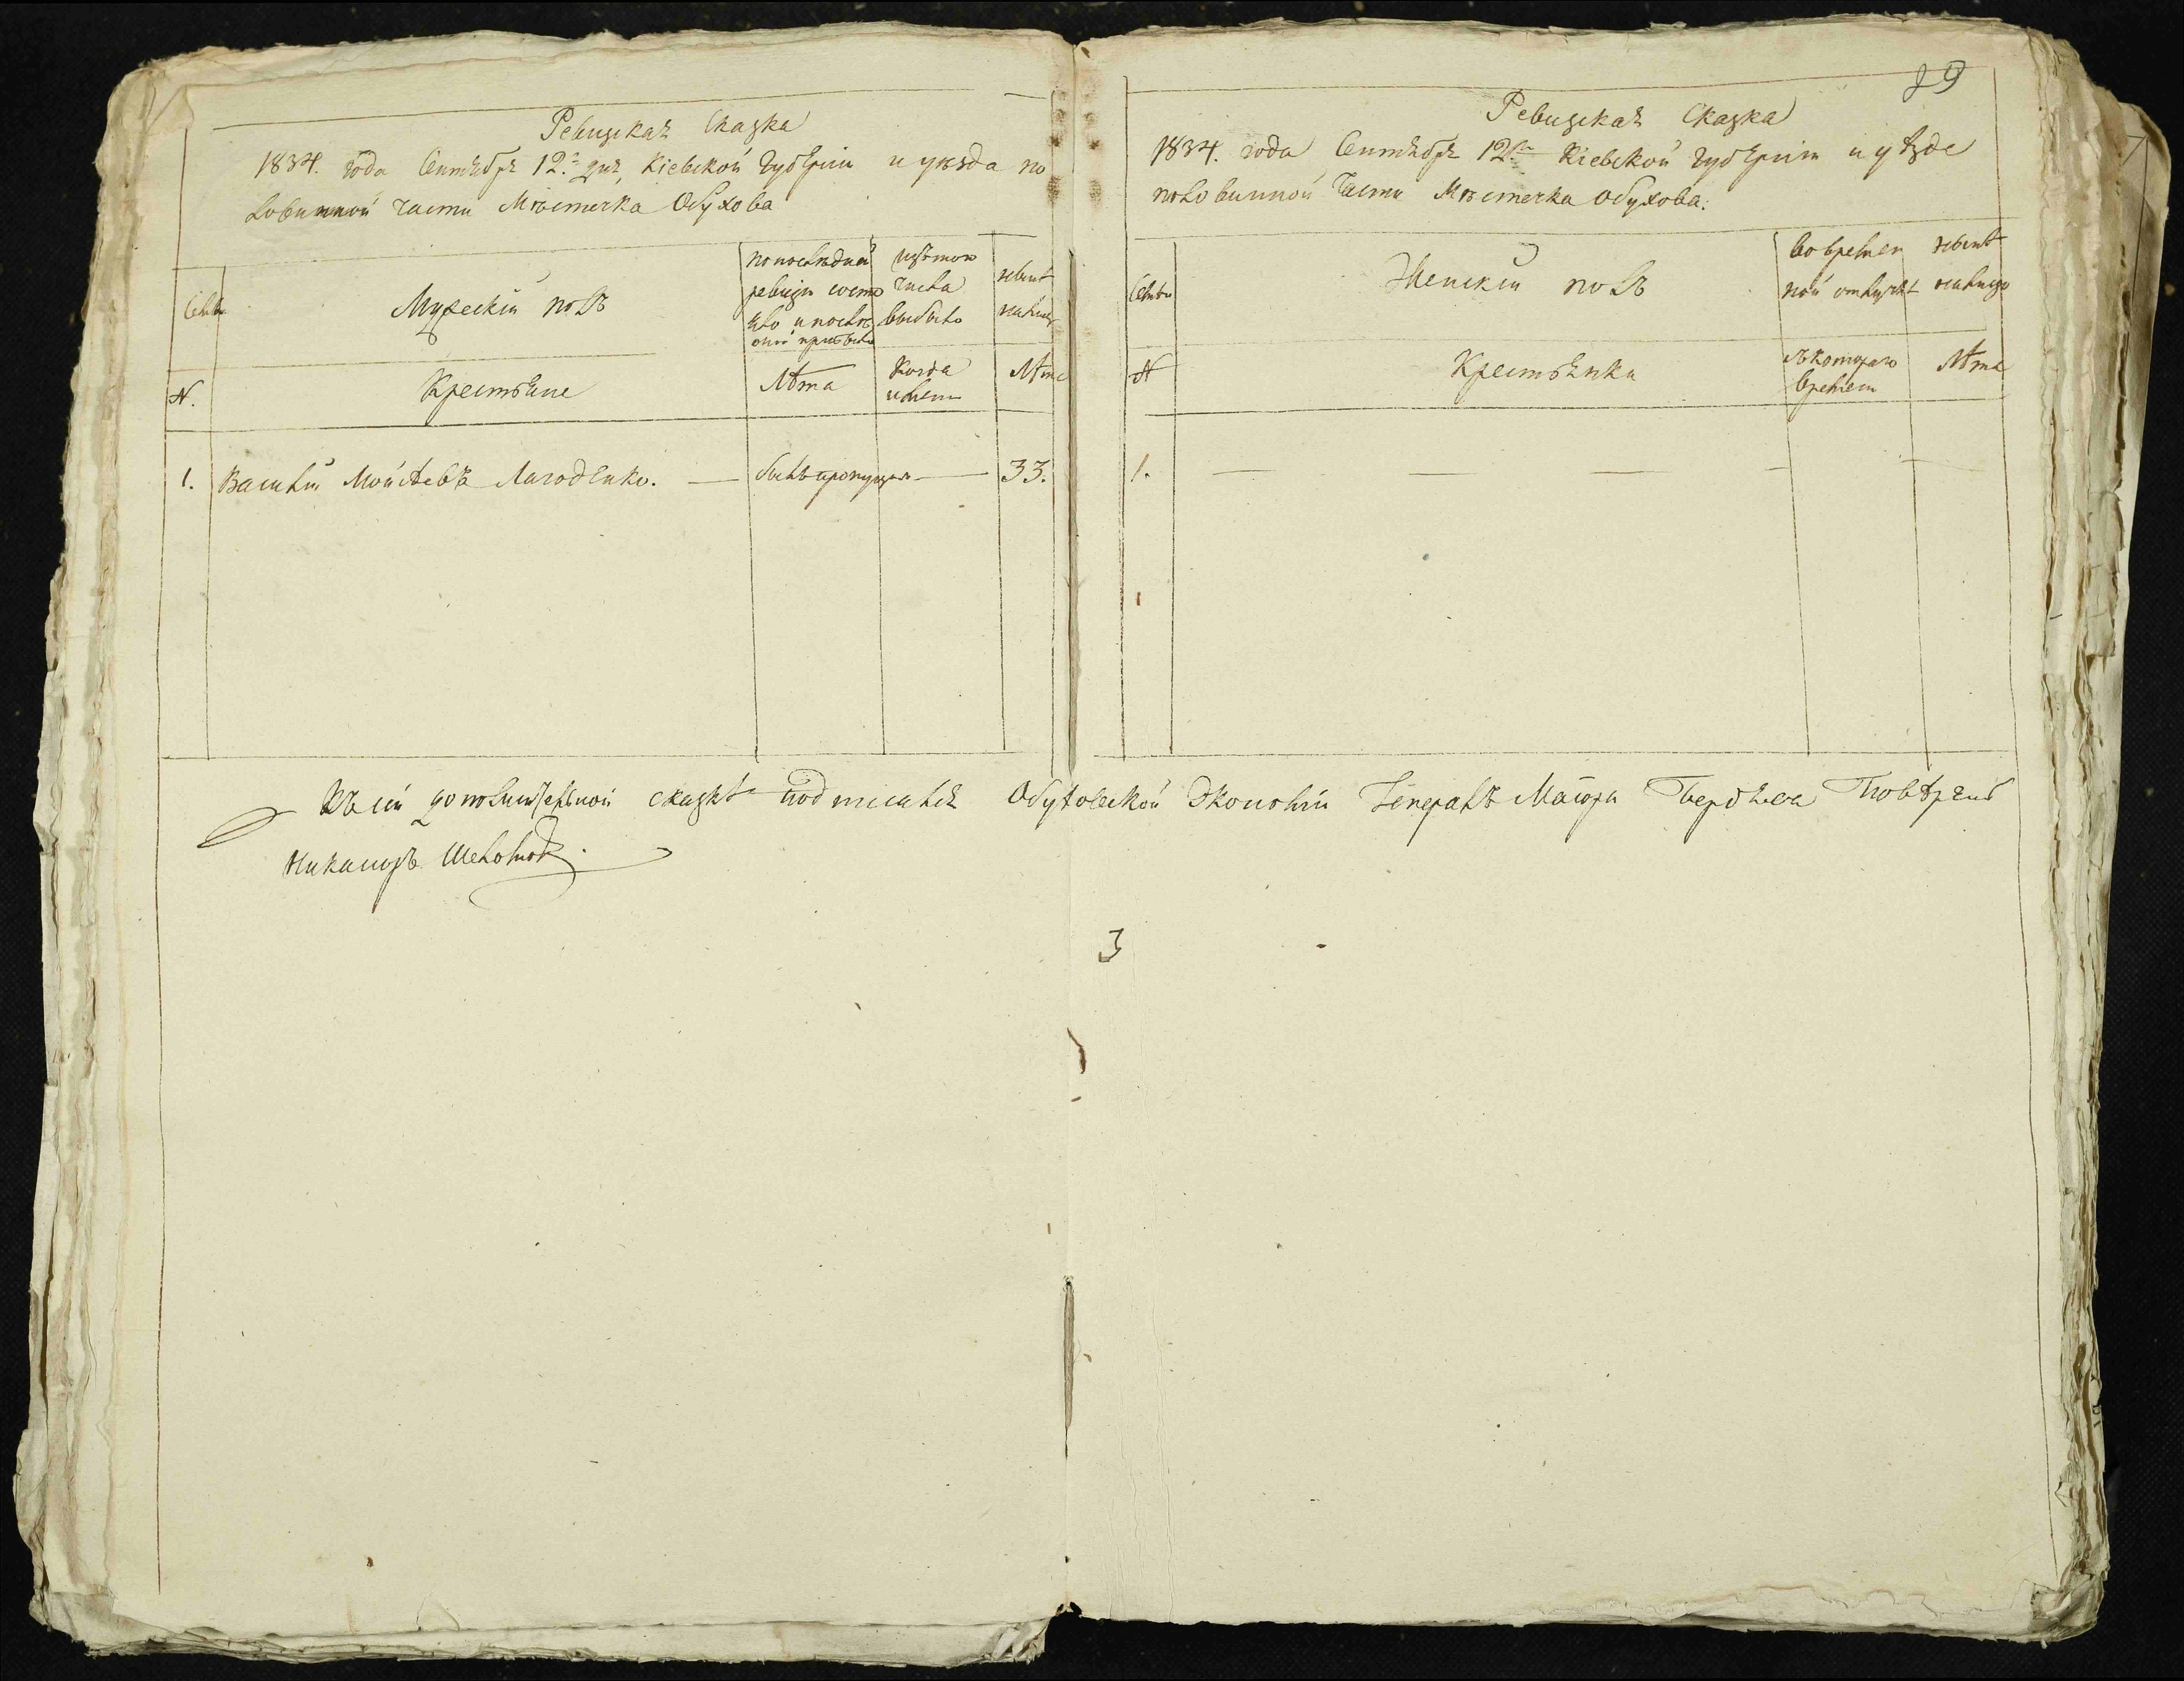 Ревизская Сказка
1834. года Сентября 12го дня, Кіевской Губерніи и уѣзда по
ловинной части Мѣстечка Обухова
Семьи
Мужескій полъ
по послѣдней
ревизіи состо
яло и послѣ
оной прибыло
изъ того
числа
выбыло
нынѣ
на лицо
N.
Крестьяне
Лѣта
Когда
именно
Лѣта
1. Василій Мойсѣевъ Лагоденко. — былъ пропущен — 33.
89
Ревизская Сказка
1834. года Сентября 12го Кіевской Губерніи и уѣзда
половинной части Мѣстечка Обухова.
Семьи
Женскій полъ
Во времен
ной отлучкѣ
нынѣ
на лицо
N
Крестьянки
съ котораго
времени
Лѣта
1. — — — — —
Къ сей дополнительной сказкѣ подписался Обуховской Экономіи Генералъ Маіора Бердяева Повѣрен
Никаноръ
3